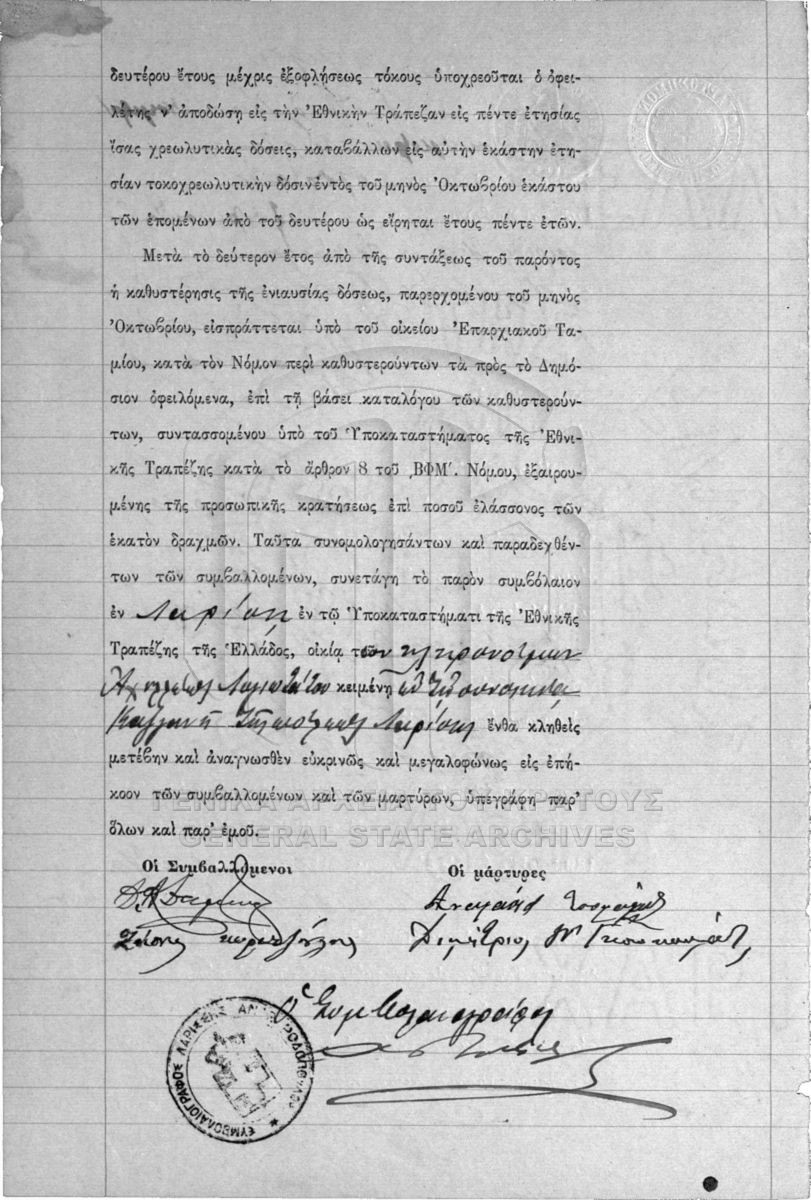 δευτέρου ἔτους μέχρις ἐξοφλήσεως τόκους ὑποχρεοῦται ὁ ὀφει-
λέτης ν' ἀποδώσῃ εἰς τὴν Ἐθνικὴν Τράπεζαν εἰς πέντε ἐτησίας
ἴσας χρεωλυτικὰς δόσεις, καταβάλλων εἰς αὐτὴν ἑκάστην ἐτη-
σίαν τοκοχρεωλυτικὴν δόσιν ἐντὸς τοῦ μηνὸς Ὀκτωβρίου ἑκάστου
τῶν ἑπομένων ἀπὸ τοῦ δευτέρου ὡς εἴρηται ἔτους πέντε ἐτῶν.
Μετὰ τὸ δεύτερον ἔτος ἀπὸ τῆς συντάξεως τοῦ παρόντος
ἡ καθυστέρησις τῆς ἐνιαυσίας δόσεως, παρερχομένου τοῦ μηνὸς
Ὀκτωβρίου, εἰσπράττεται ὑπὸ τοῦ οἰκείου Ἐπαρχιακοῦ Τα-
μίου, κατὰ τὸν Νόμον περὶ καθυστερούντων τὰ πρὸς τὸ Δημό-
σιον ὀφειλόμενα, ἐπὶ τῇ βάσει καταλόγου τῶν καθυστερούν-
των, συντασσομένου ὑπὸ τοῦ Ὑποκαταστήματος τῆς Ἐθνι-
κῆς Τραπέζης κατὰ τὸ ἄρθρον 8 τοῦ ͵ΒΦΜ΄. Νόμου, ἐξαιρου-
μένης τῆς προσωπικῆς κρατήσεως ἐπὶ ποσοῦ ἐλάσσονος τῶν
ἑκατὸν δραχμῶν. Ταῦτα συνομολογησάντων καὶ παραδεχθέν-
των τῶν συμβαλλομένων, συνετάγη τὸ παρὸν συμβόλαιον
ἐν Λαρίσῃ ἐν τῷ Ὑποκαταστήματι τῆς Ἐθνικῆς
Τραπέζης τῆς Ἑλλάδος, οἰκίᾳ τῶν κληρονόμων
κειμένῃ
Λαρίσης ἔνθα κληθεὶς
μετέβην καὶ ἀναγνωσθὲν εὐκρινῶς καὶ μεγαλοφώνως εἰς ἐπή-
κοον τῶν συμβαλλομένων καὶ τῶν μαρτύρων, ὑπεγράφη παρ'
ὅλων καὶ παρ' ἐμοῦ.
ΓΕΝΙΚΑ ΑΡΧΕΙΑ ΤΟΥ ΚΡΑΤΟΥΣ
GENERAL STATE ARCHIVES
Οἱ Συμβαλλόμενοι
Οἱ μάρτυρες
Δημήτριος
Ὁ Συμβολαιογράφος
ΣΥΜΒΟΛΑΙΟΓΡΑΦΟΣ ΛΑΡΙΣΣΗΣ